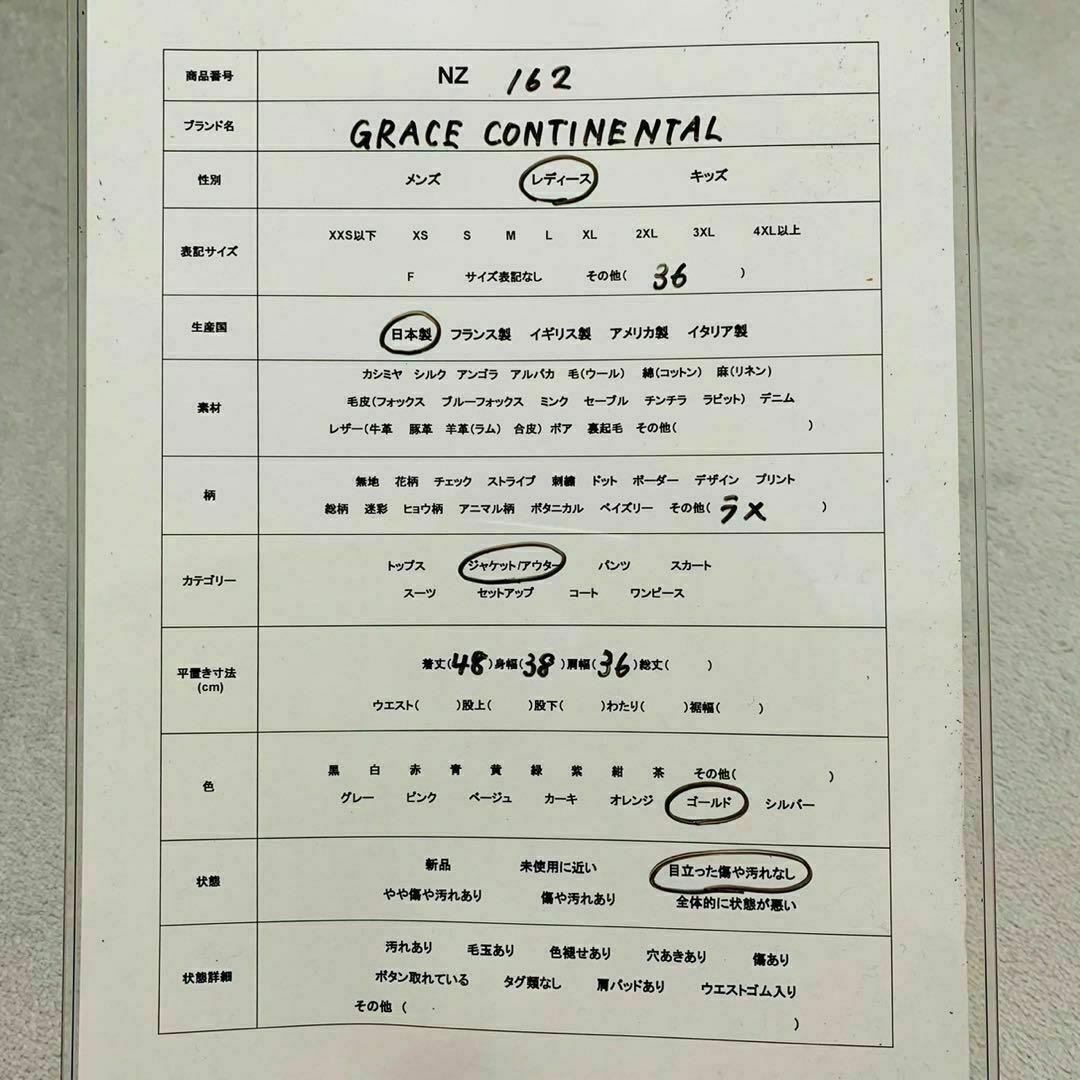 商品番号 NZ 162
ブランド名 GRACE CONTINENTAL
性別 メンズ レディース キッズ
表記サイズ XXS以下 XS S M L XL 2XL 3XL 4XL以上
F サイズ表記なし その他( 36 )
生産国 日本製 フランス製 イギリス製 アメリカ製 イタリア製
素材 カシミヤ シルク アンゴラ アルパカ 毛(ウール) 綿(コットン) 麻(リネン)
毛皮(フォックス ブルーフォックス ミンク セーブル チンチラ ラビット) デニム
レザー(牛革 豚革 羊革(ラム) 合皮) ボア 裏起毛 その他( )
柄 無地 花柄 チェック ストライプ 刺繍 ドット ボーダー デザイン プリント
総柄 迷彩 ヒョウ柄 アニマル柄 ボタニカル ペイズリー その他( ラメ )
カテゴリー トップス ジャケット/アウター パンツ スカート
スーツ セットアップ コート ワンピース
平置き寸法 (cm) 着丈(48)身幅(38)肩幅(36)総丈( )
ウエスト( )股上( )股下( )わたり( )裾幅( )
色 黒 白 赤 青 黄 緑 紫 紺 茶 その他( )
グレー ピンク ベージュ カーキ オレンジ ゴールド シルバー
状態 新品 未使用に近い 目立った傷や汚れなし
やや傷や汚れあり 傷や汚れあり 全体的に状態が悪い
状態詳細 汚れあり 毛玉あり 色褪せあり 穴あきあり 傷あり
ボタン取れている タグ類なし 肩パッドあり ウエストゴム入り
その他 ( )